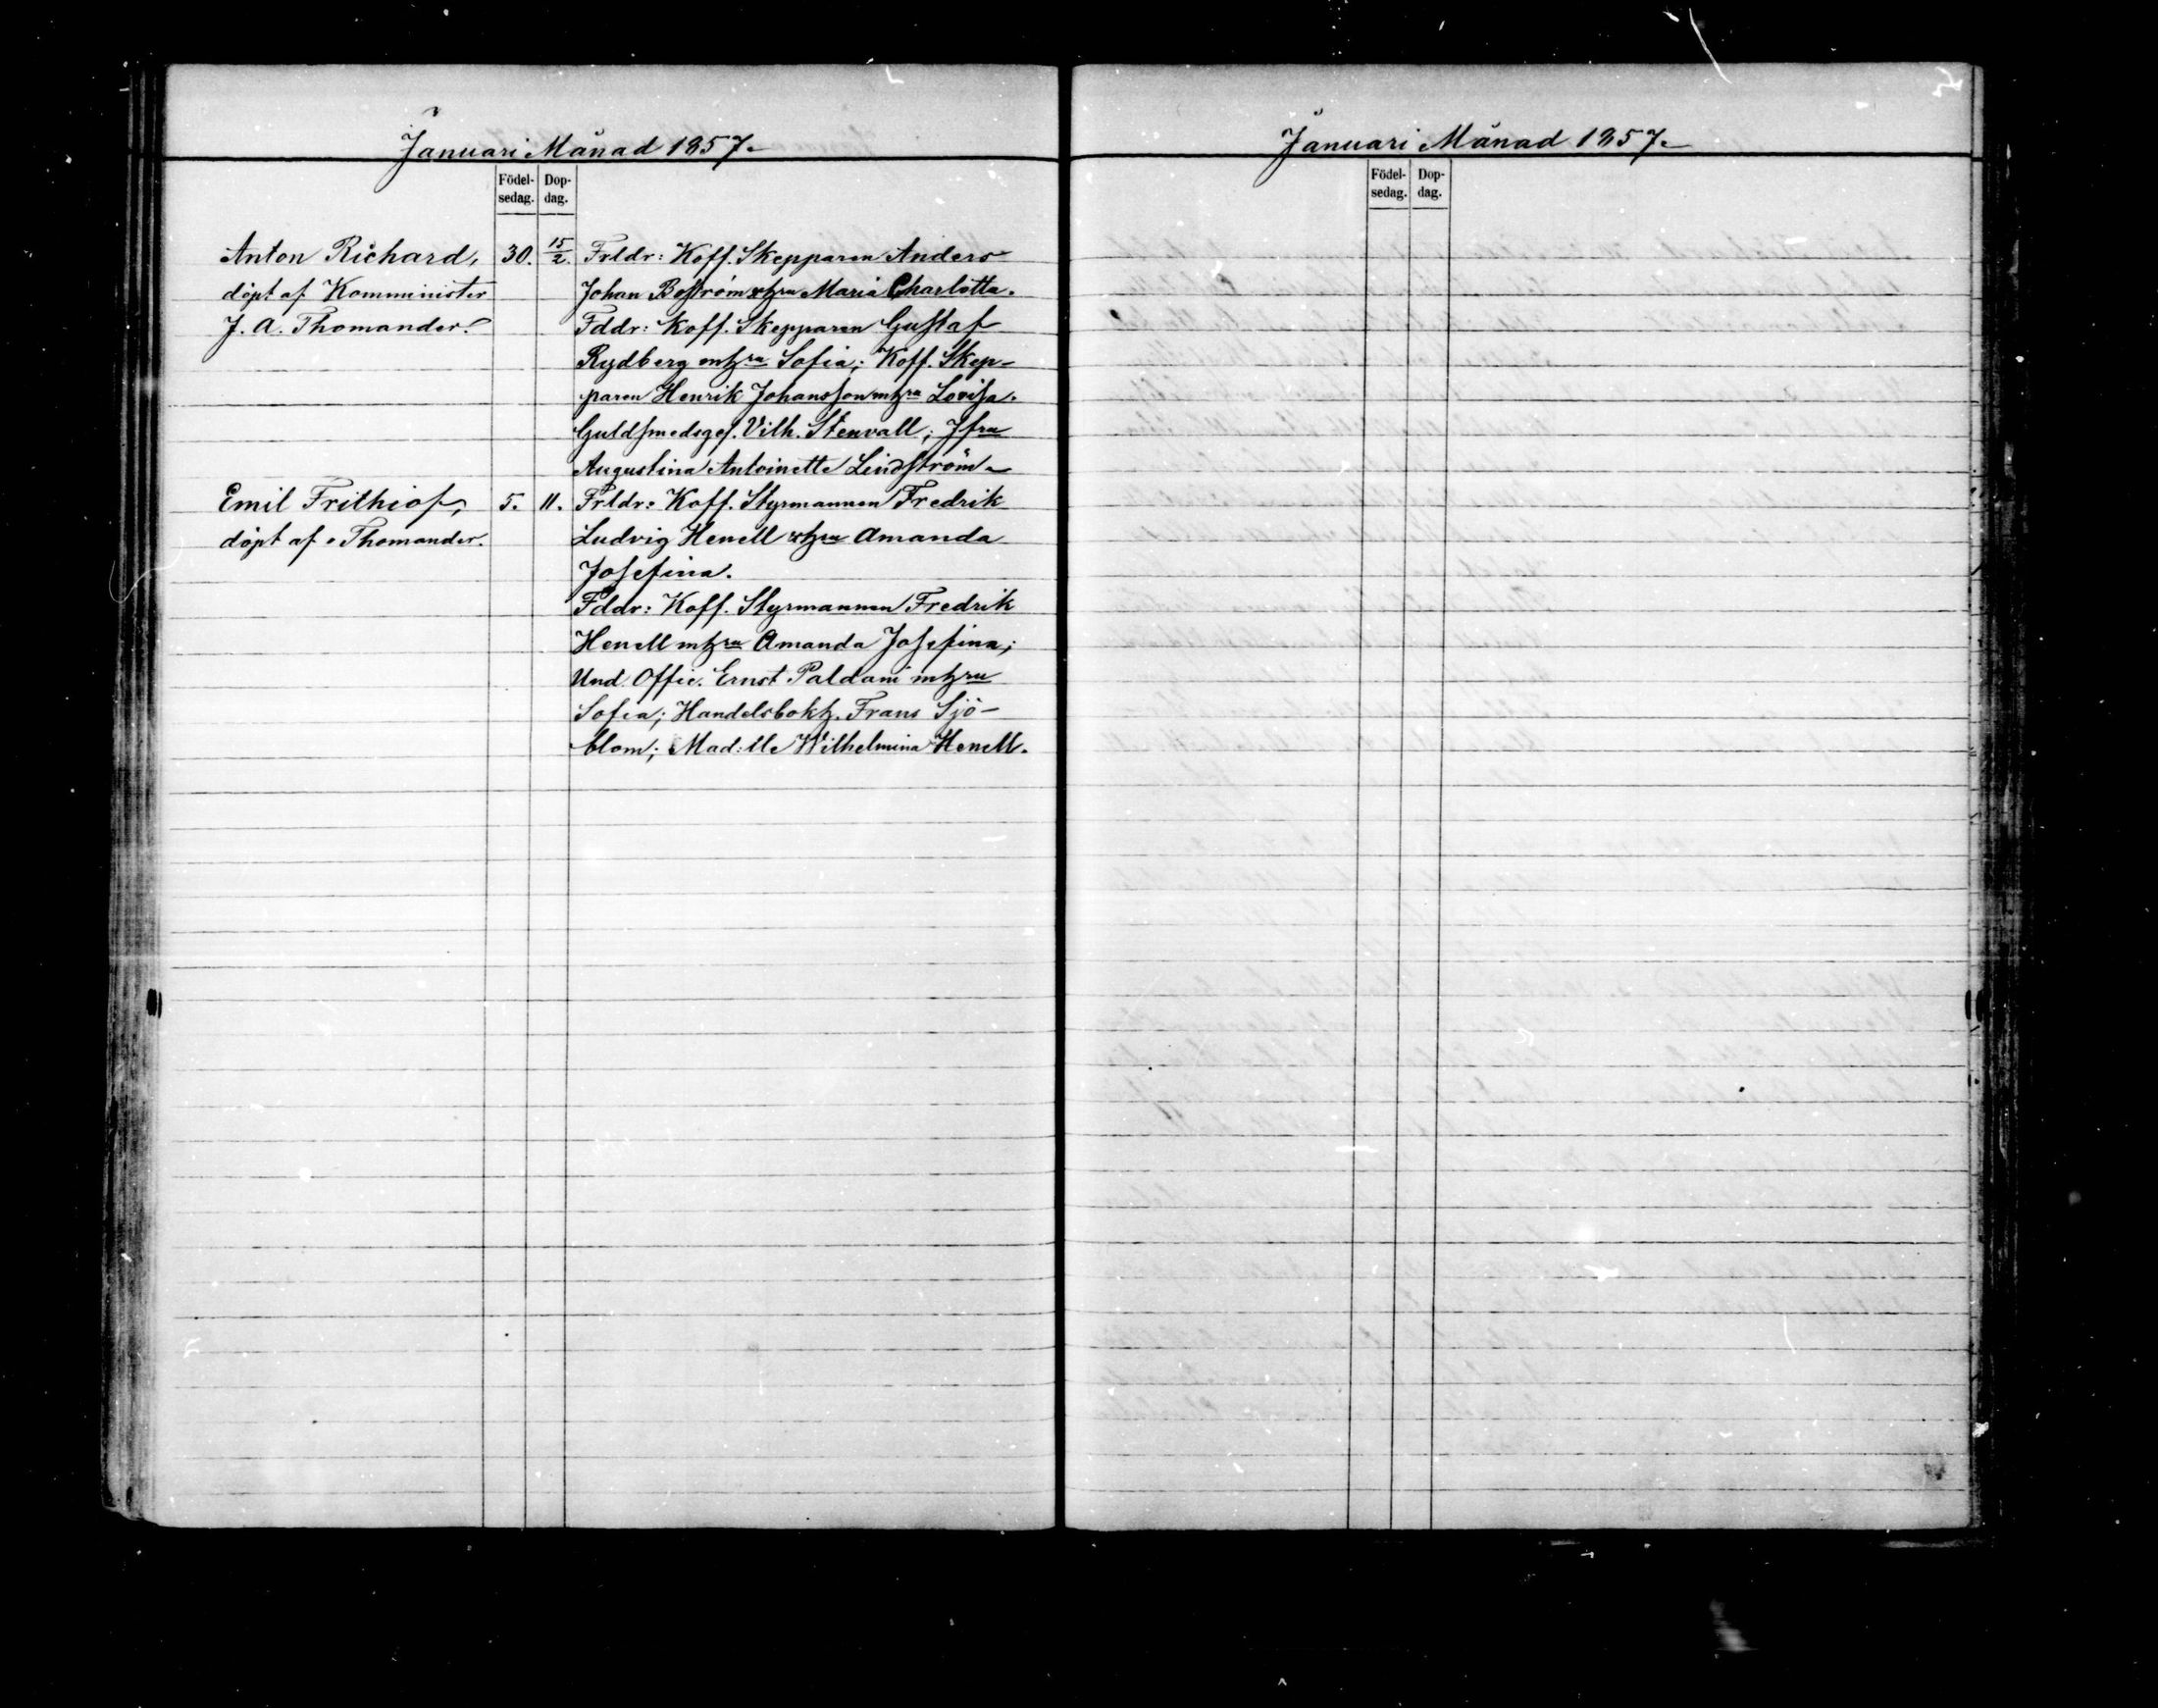 Januari Månad 1857.
Födel-
sedag.
Dop-
dag.
Anton Richard,
döpt af Komminister
J. A. Thomander.
30.
15/2.
Frldr: Koff. Skepparen Anders
Johan Boström o hu Maria Charlotta.
Fddr: Koff. Skepparen Gustaf
Rydberg m hu Sofia; Koff. Skep-
paren Henrik Johansson m hu Lovisa.
Guldsmedsges. Vilh. Stenvall; Jfru
Augustina Antoinette Lindström
Emil Frithiof,
döpt af Thomander.
5.
11.
Frldr: Koff. Styrmannen Fredrik
Ludvig Henell o hu Amanda
Josefina.
Fddr: Koff. Styrmannen Fredrik
Henell m hu Amanda Josefina;
Und. Offic. Ernst Paldani m hu
Sofia; Handelsbokh. Frans Sjö-
blom; Mad:lle Wilhelmina Henell.
Januari Månad 1857.
Födel-
sedag.
Dop-
dag.